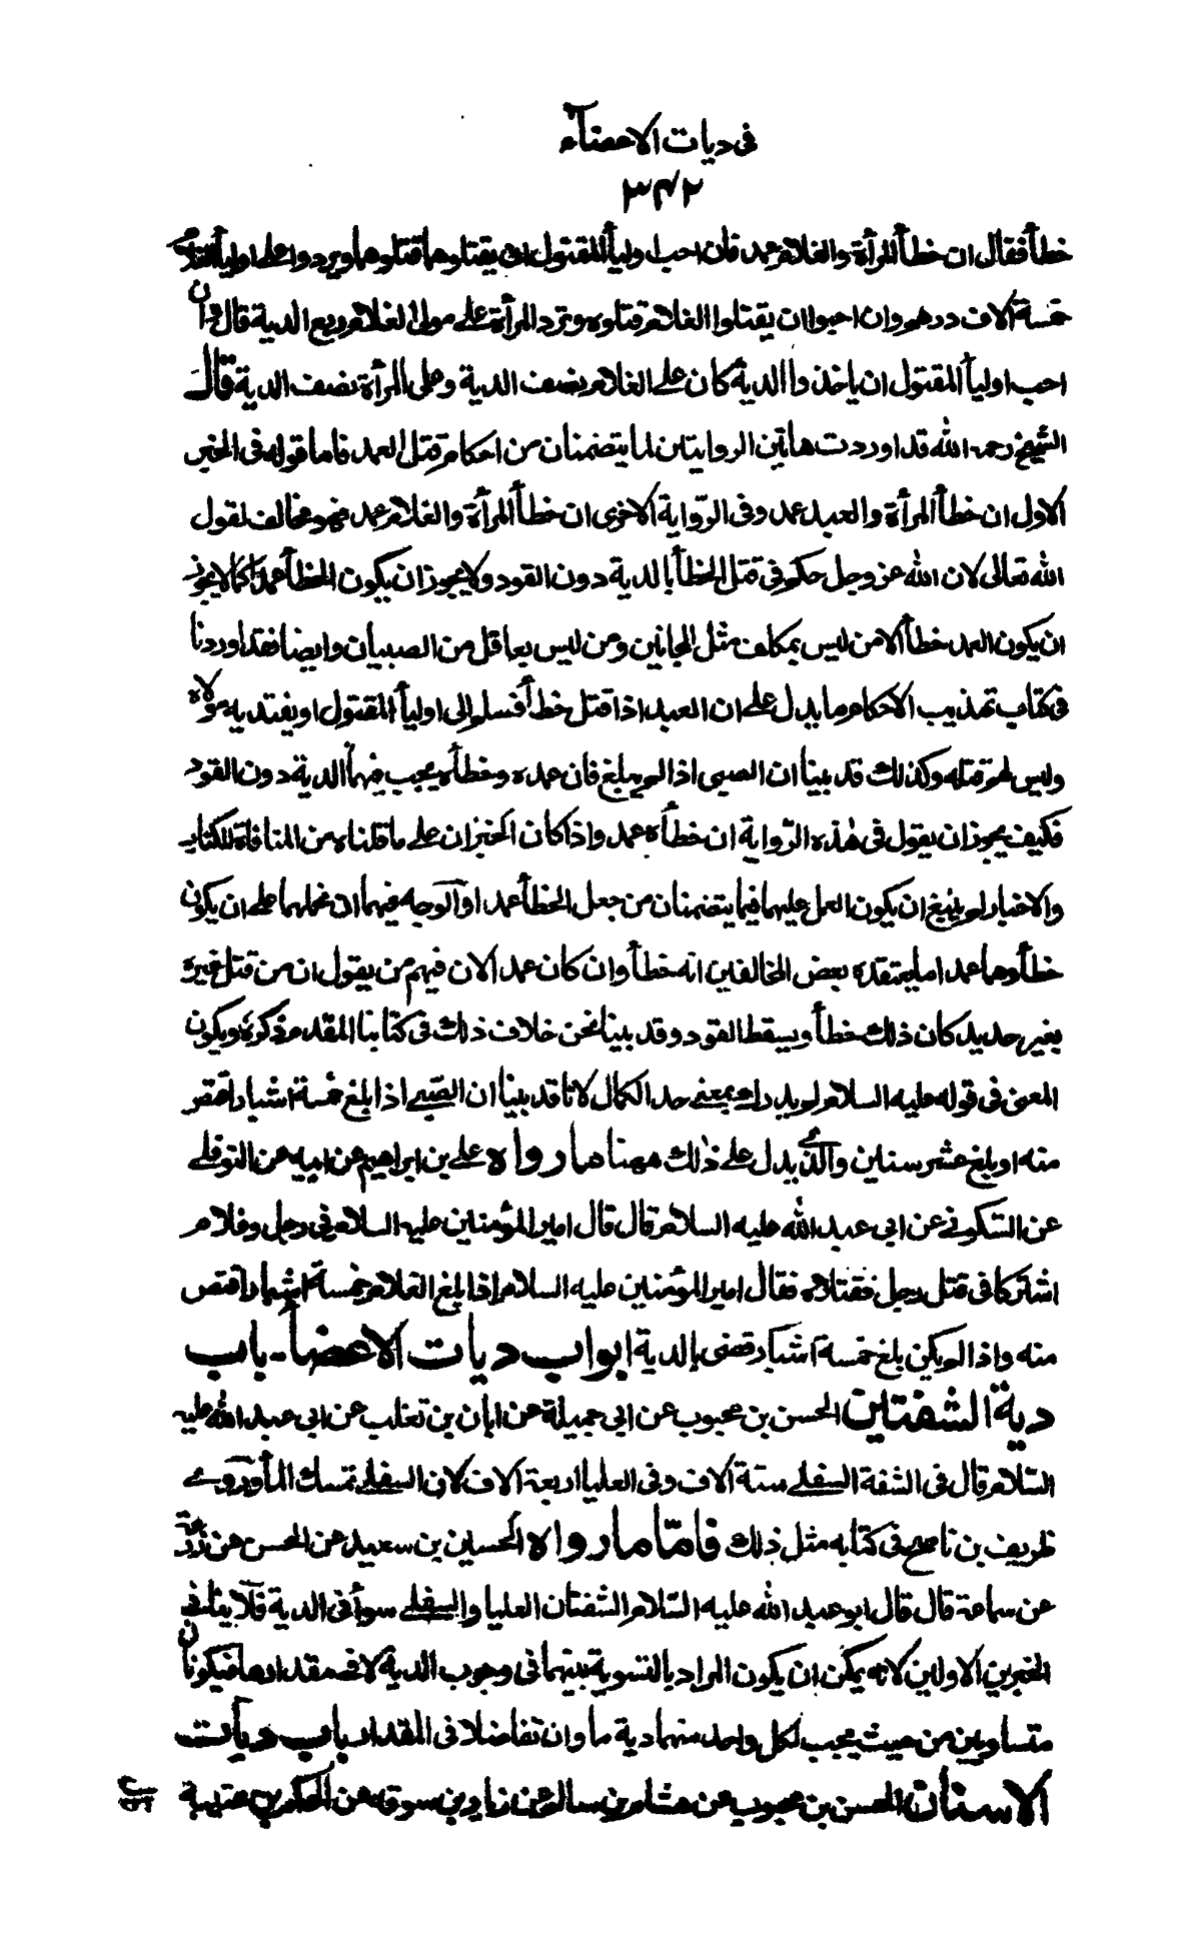 فى ديات الاعضآء
٣٤٢
خطأ فقال ان خطأ المرأة والغلام عمد فان احب اوليأ المقتول ان يقتلوهما قتلوهما ويردوا على اوليأ الغلام
خمسة آلاف درهم وان احبوا ان يقتلوا الغلام قتلوه وترد المرأة على موالى الغلام ربع الدية قال وان
احب اوليأ المقتول ان ياخذوا الدية كان على الغلام نصف الدية وعلى المرأة نصف الدية قال
الشيخ رحمه الله قد اوردت هاتين الروايتين لما يتضمنان من احكام قتل العمد فاما قوله فى الخبر
الاول ان خطأ المرأة والعبد عمد وفى الرّواية الاخرى ان خطأ المرأة والغلام عمد فهو مخالف لقول
الله تعالى لان الله عز وجل حكم فى قتل الخطأ بالدية دون القود ولا يجوز ان يكون الخطأ عمدًا كما لا يجوز
ان يكون العمد خطأ الا من ليس بمكلف مثل المجانين ومن ليس بعاقل من الصبيان وايضا فقد اوردنا
فى كتاب تهذيب الاحكام ما يدل على ان العبد اذا قتل خطأ فسلم الى اوليأ المقتول او يفتديه مولاه
وليس لهم قتله وكذلك قد بينا ان الصبى اذا لم يبلغ فان عمده وخطأه يجب فيهما الدية دون القود
فكيف يجوز ان يقول فى هٰذه الرّواية ان خطأه عمد واذا كان الخبران على ما قلناه من المنافاة للكتاب
والاخبار لم ينبغ ان يكون العمل عليهما فيما يتضمنان من جعل الخطأ عمدا والوجه فيهما ان نحملهما على ان يكون
خطأوهما عمدا ما يعتقده بعض المخالفين انه خطأ وان كان عمدا لان فيهم من يقول ان من قتل غيره
بغير حديد كان ذلك خطأ ويسقط القود وقد بينا نحن خلاف ذلك فى كتابنا المقدم ذكره ويكون
المعنى فى قوله عليه السلام لم يدرك بمعنى حد الكمال لانا قد بينا ان الصّبى اذا بلغ خمسة اشبار اقتص
منه او بلغ عشر سنين والّذى يدل على ذٰلك ههنا ما رواه على بن ابراهيم عن ابيه عن النوفلى
عن السّكونى عن ابى عبد الله عليه السلام قال قال امير المؤمنين عليه السلام فى رجل وغلام
اشتركا فى قتل رجل فقتلاه فقال امير المؤمنين عليه السلام اذا بلغ الغلام خمسة اشبار اقتص
منه واذا لم يكن بلغ خمسة اشبار قضى بالدية ابواب ديات الاعضأ- باب
دية الشفتين الحسن بن محبوب عن ابى جميلة عن ابان بن تغلب عن ابى عبد الله عليه
السّلام قال فى الشفة السفلى ستة آلاف وفى العليا اربعة آلاف لان السفلى تمسك المأ وروى
ظريف بن ناصح فى كتابه مثل ذلك فامّا ما رواه الحسين بن سعيد عن الحسن عن زرعة
عن سماعة قال قال ابو عبد الله عليه السّلام الشفتان العليا والسفلى سوأ فى الدية فلا ينافى
الخبرين الاولين لانه يمكن ان يكون المراد بالتسوية بينهما فى وجوب الدية لا فى مقدارها فيكونان
متساويين من حيث يجب لكل واحد منهما دية ما وان تفاضلا فى المقدار باب ديات
الاسنان الحسن بن محبوب عن هشام بن سالم عن زياد بن سوقه عن الحكم بن عتيبة